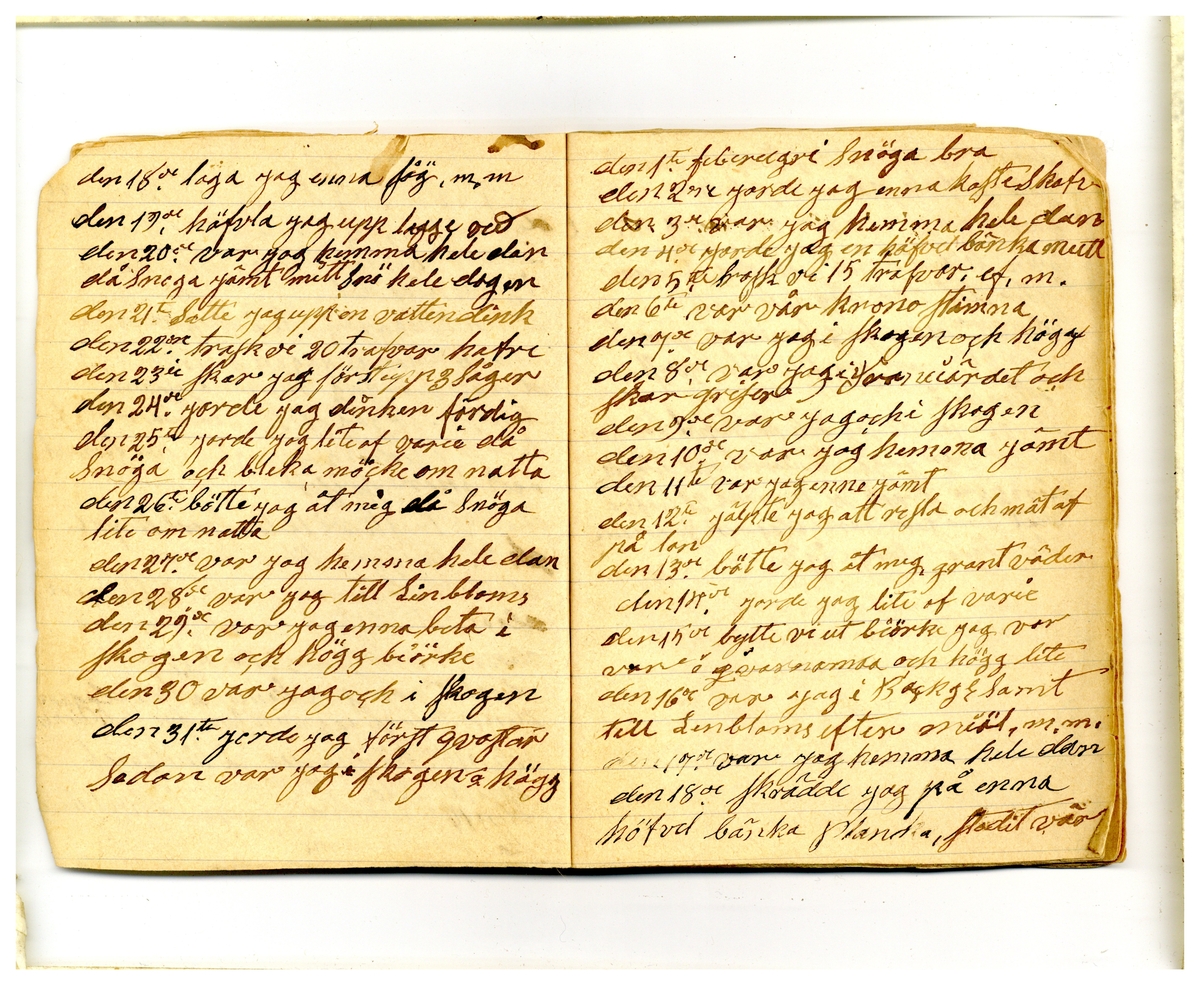 den 18de laga jag enna såg, m, m
den 19de höfvla jag upp lagge ved
den 20de var jag hemma hele dan
då Snega jämt mitt Snö hele dagen
den 21te Satte jag upp en vatten dink
den 22re trask vi 20 trafvar hafre
den 23ie skar jag först upp 3 Såger
den 24de jorde jag dinken färdig
den 25te jorde jag lite af varie då
Snöga och bleka möcke om natta
den 26te bötte jag åt mig då Snöga
lite om natta
den 27de var jag hemma hele dan
den 28de var jag till Linbloms
den 29de var jag enna beta i
skogen och högg biörke
den 30 var jag och i skogen
den 31te jorde jag först qvastar
Sedan var jag i skogen å högg
den 1te feberegri Snöga bra
den 2re jorde jag enna kaste Skofv
den 3e var jag hemma hele dan
den 4de jorde jag en höfvel bänka mitt
den 5te trask vi 15 trafvar, ef, m.
den 6te var vår krono stämna
den 7de var jag i skogen och högg
den 8de var jag i och
skar grifer
den 9de var jag och i skogen
den 10de var jag hemma jämt
den 11te var jag enne jämt
den 12te jälpte jag att resla och mät af
på lan
den 13de bötte jag åt mig, grant väder
den 14de jorde jag lite af varie
den 15de bytte vi ut biörke jag var
var å qvarnamsa och högg lite
den 16de var jag i Samt
till Linbloms efter miöl, m.m.
den 17de var jag hemma hele dan
den 18de skrädde jag på enna
höfvel bänka planka, stadit vär